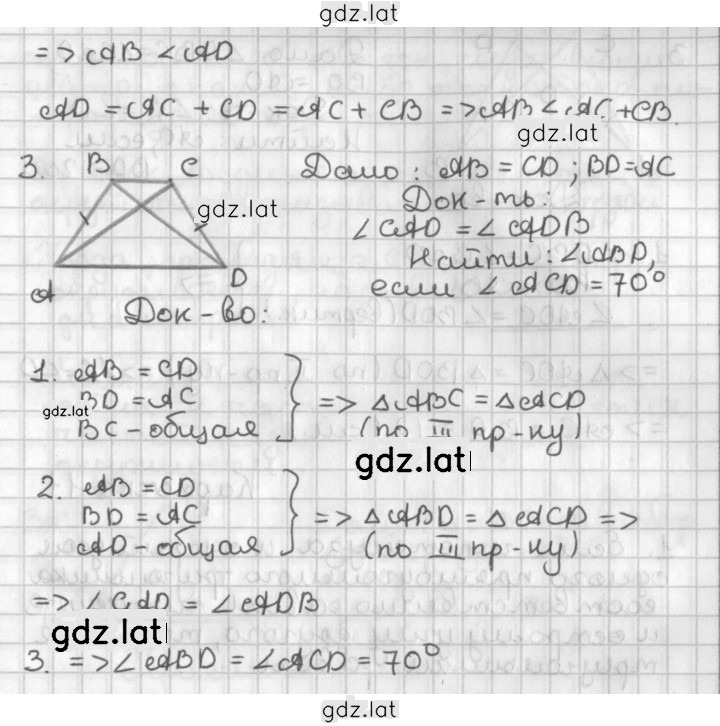 gdz.lat
=> AB < AD
AD = AC + CD = AC + CB => AB < AC + CB.
gdz.lat
3. B C Дано: AB = CD; BD = AC
Док-ть:
gdz.lat
∠CAD = ∠ADB
Найти: ∠ABD,
A D если ∠ACD = 70°
Док-во:
1. AB = CD
BD = AC => △ABC = △ACD
gdz.lat
BC - общая (по III пр-ку)
gdz.lat
2. AB = CD
BD = AC => △ABD = △ACD =>
AD - общая (по III пр-ку)
=> ∠CAD = ∠ADB
gdz.lat
3. => ∠ABD = ∠ACD = 70°
gdz.lat